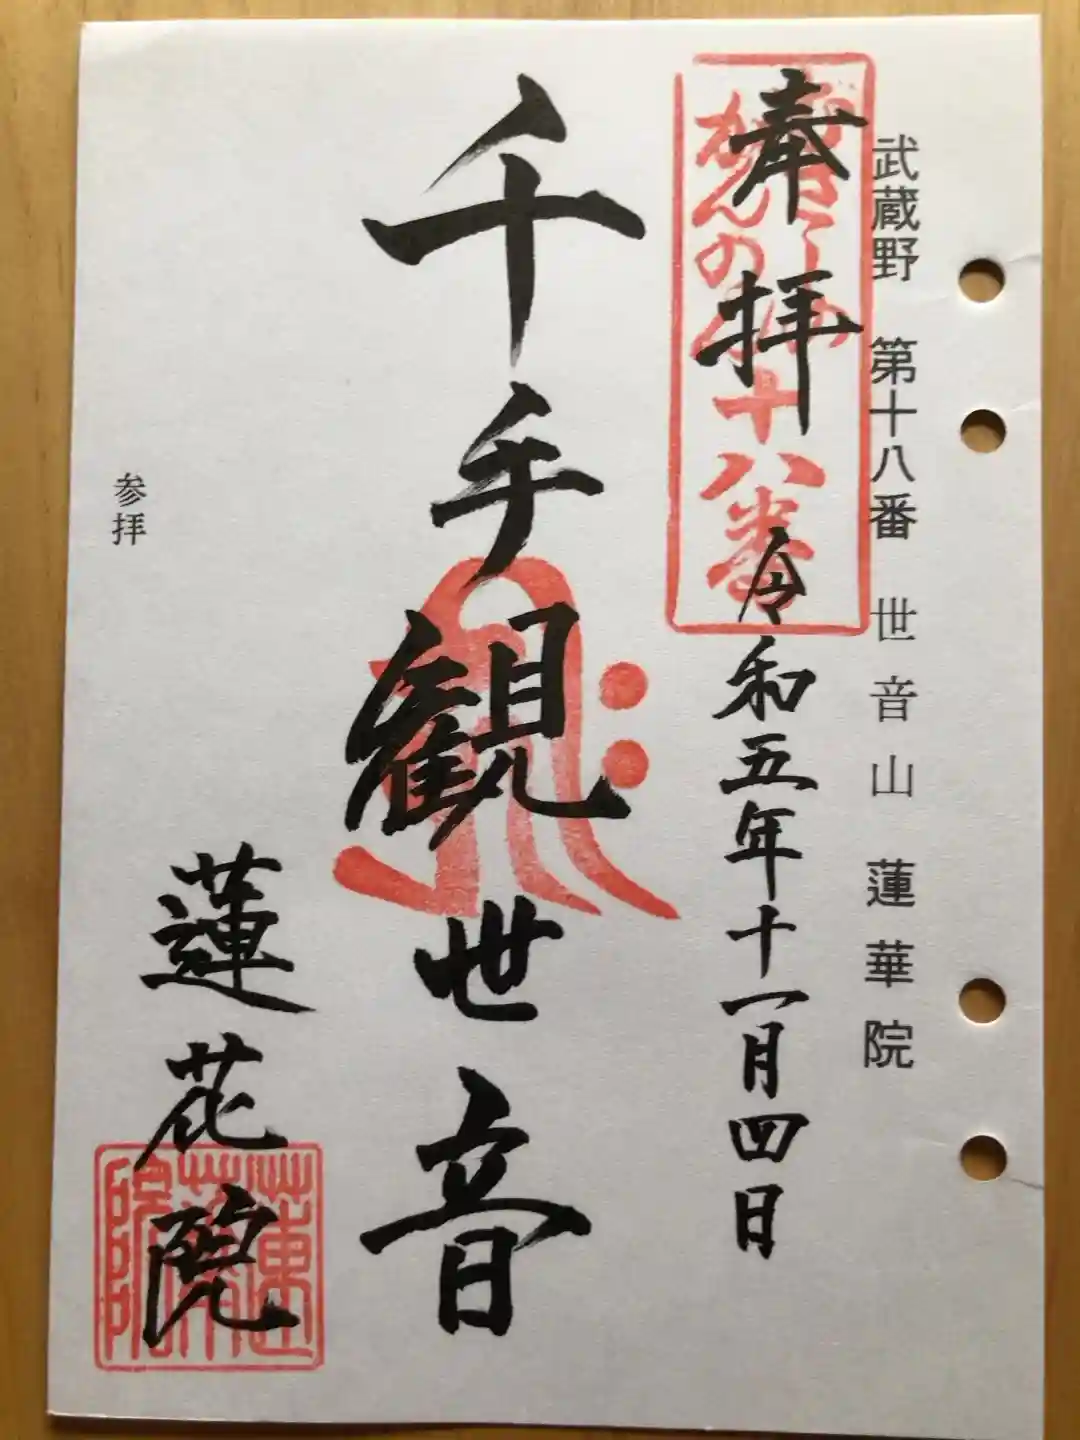 武蔵野 第十八番 世音山 蓮華院
奉拝
十八番
令和五年十一月四日
千手観世音
蓮花院
参拝
蓮華院